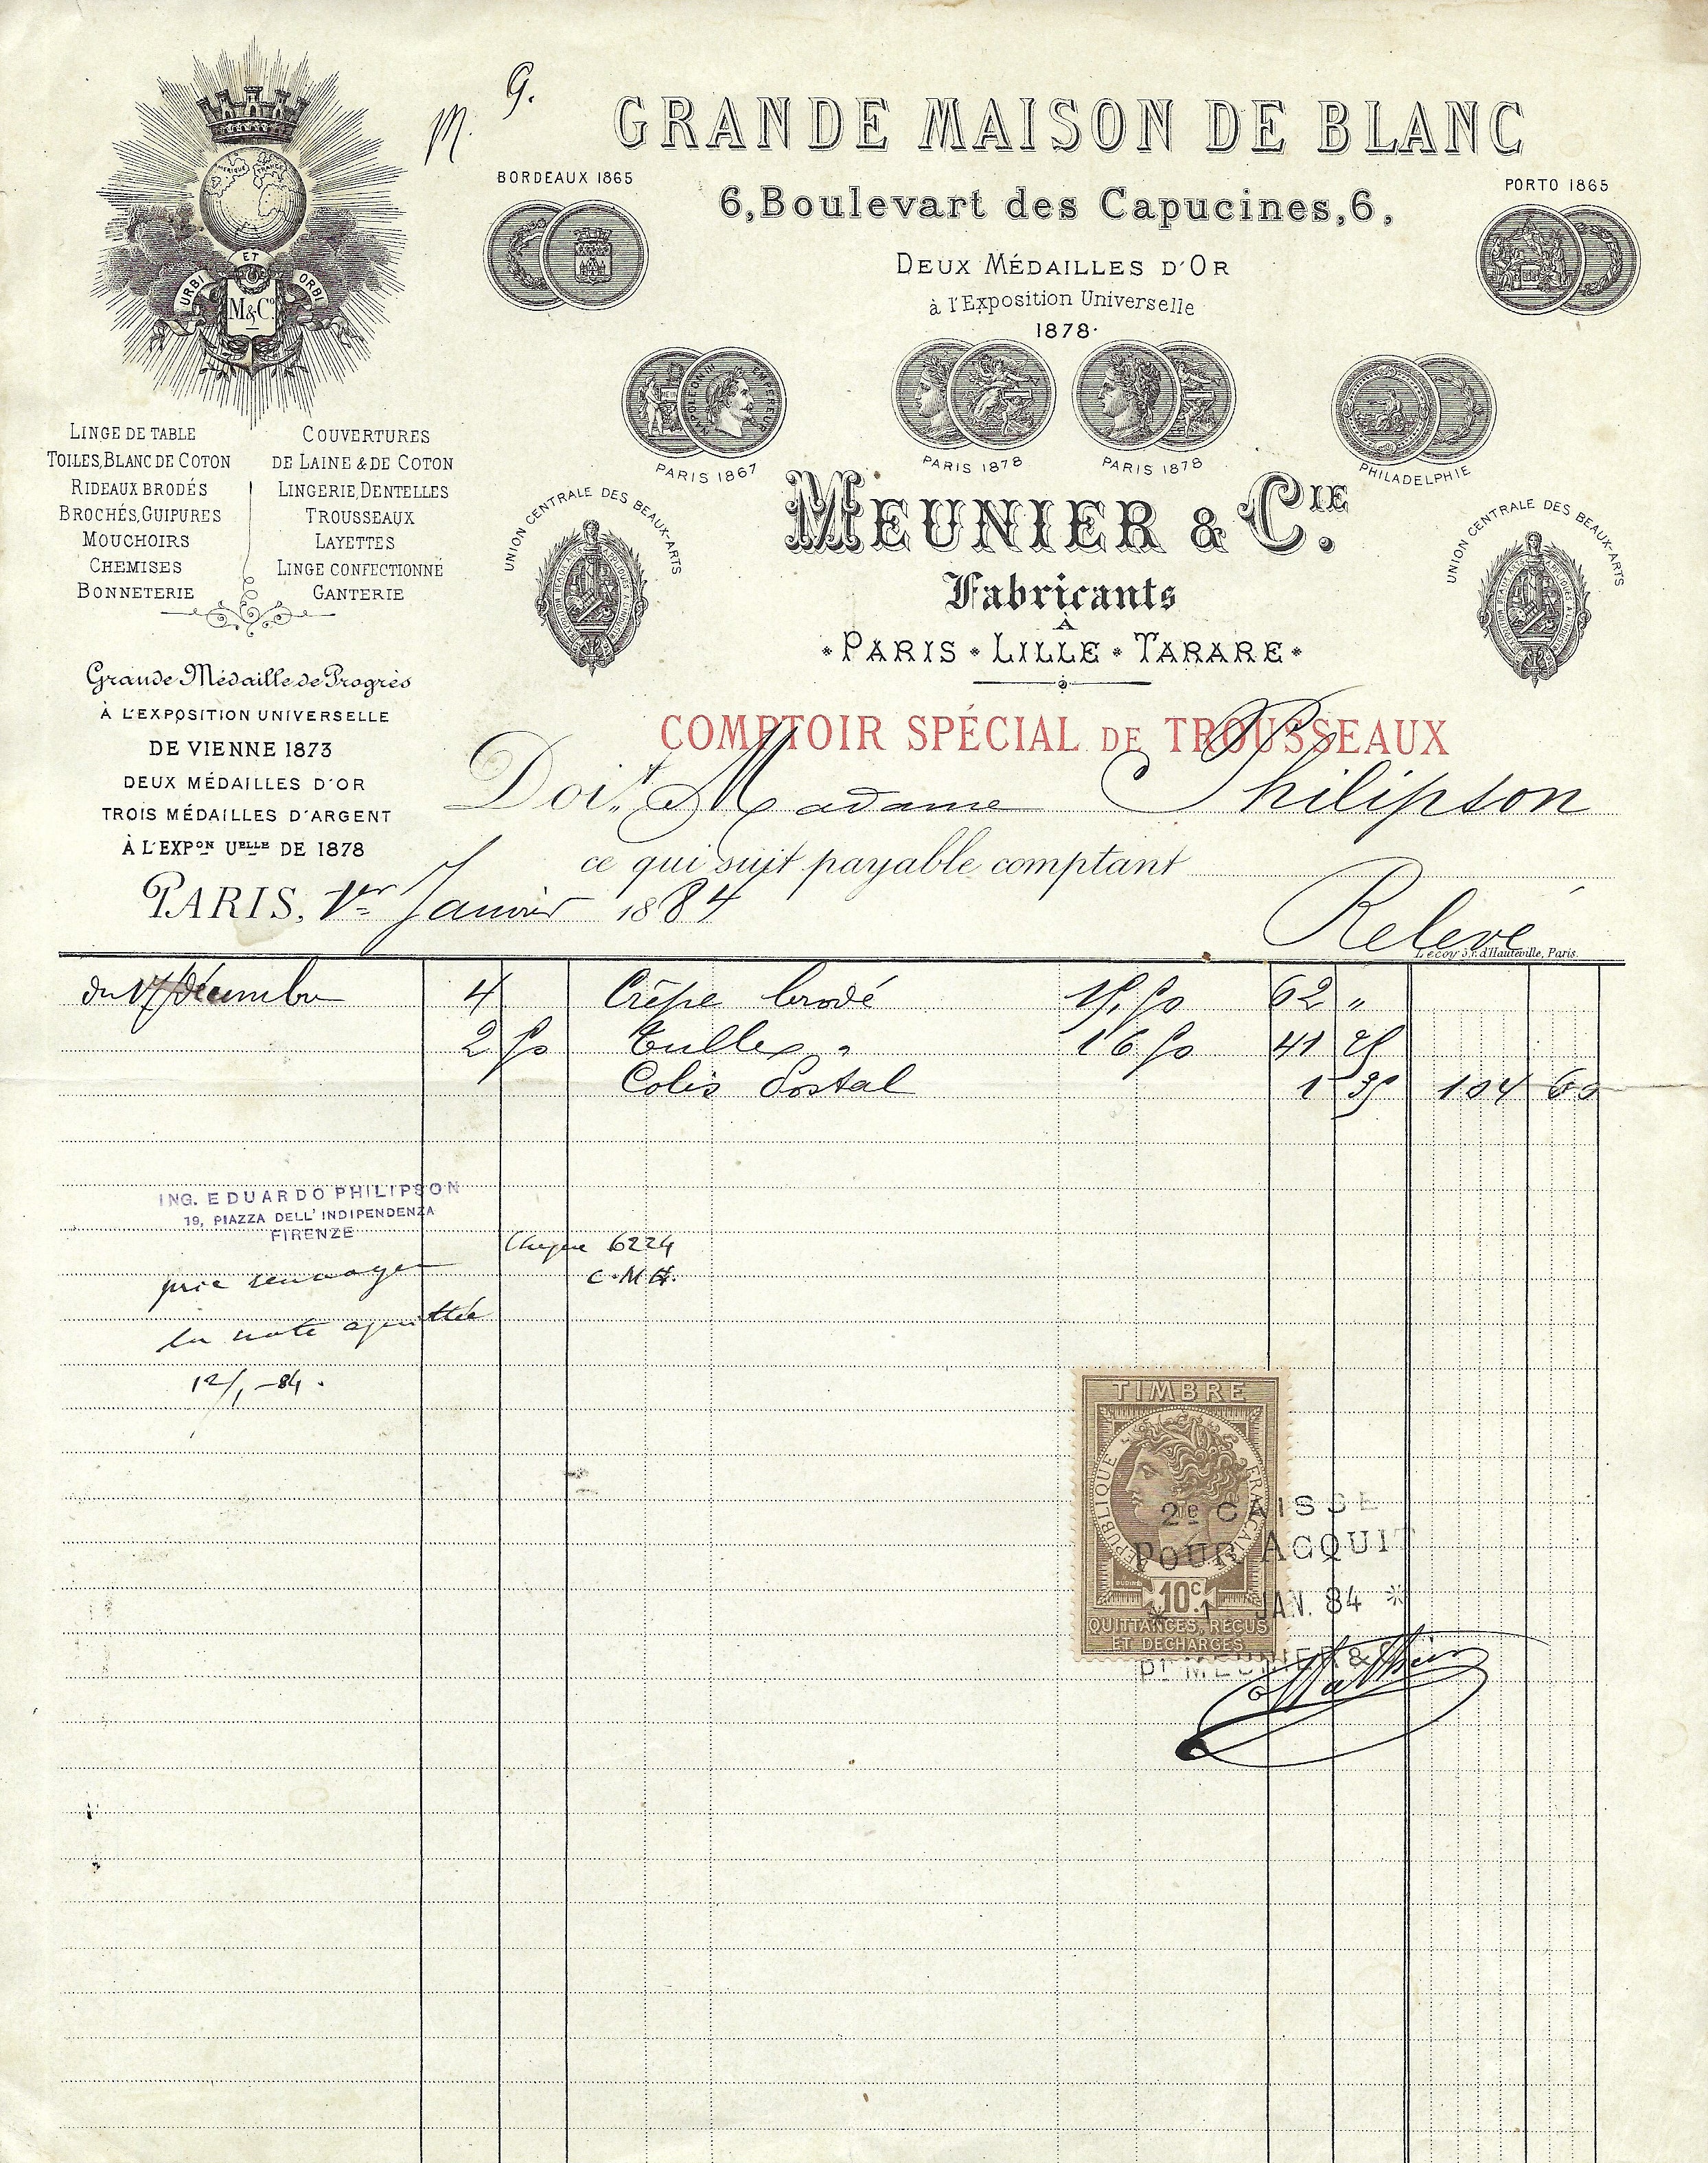 M. G.
GRANDE MAISON DE BLANC
6, Boulevart des Capucines, 6,
DEUX MÉDAILLES D'OR
à l'Exposition Universelle
1878.
BORDEAUX 1865
PORTO 1865
URBI ET ORBI
M & Cº
NAPOLEON III EMPEREUR
PARIS 1867
PARIS 1878
PARIS 1878
PHILADELPHIE
UNION CENTRALE DES BEAUX-ARTS
UNION CENTRALE DES BEAUX-ARTS
MEUNIER & CIE.
Fabricants
À
PARIS • LILLE • TARARE
LINGE DE TABLE
TOILES, BLANC DE COTON
RIDEAUX BRODÉS
BROCHÉS, GUIPURES
MOUCHOIRS
CHEMISES
BONNETERIE
COUVERTURES
DE LAINE & DE COTON
LINGERIE, DENTELLES
TROUSSEAUX
LAYETTES
LINGE CONFECTIONNÉ
GANTERIE
Grande Médaille de Progrès
À L'EXPOSITION UNIVERSELLE
DE VIENNE 1873
DEUX MÉDAILLES D'OR
TROIS MÉDAILLES D'ARGENT
À L'EXPON UELLE DE 1878
COMPTOIR SPÉCIAL DE TROUSSEAUX
Doit Madame Philipson
ce qui suit payable comptant
PARIS, 1er Janvier 1884
Relevé
Lecoy 3, r. d'Hauteville, Paris.
du 17 Décembre 4 Crêpe brodé 15,50 62 "
2 50 Tulle " 16 50 41 25
Colis Postal 1 35 104 60
ING. EDUARDO PHILIPSON
19, PIAZZA DELL' INDIPENDENZA
FIRENZE
Cheque 6224
prie renvoyer
la note aquittée
12/1 - 84.
TIMBRE
RÉPUBLIQUE FRANÇAISE
10c.
QUITTANCES, REÇUS
ET DECHARGES
2e CAISSE
POUR ACQUIT
* 1 JAN. 84 *
Pr MEUNIER & C